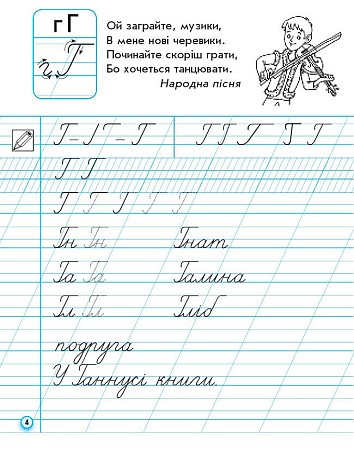 г Г
Г
Ой заграйте, музики,
В мене нові черевики.
Починайте скоріш грати,
Бо хочеться танцювати.
Народна пісня
Г Г Г Г Г
Г Г
Г Г Г Г Г
Гн Гн Гнат
Га Га Галина
Гл Гл Гліб
подруга
У Ганнусі книги.
4